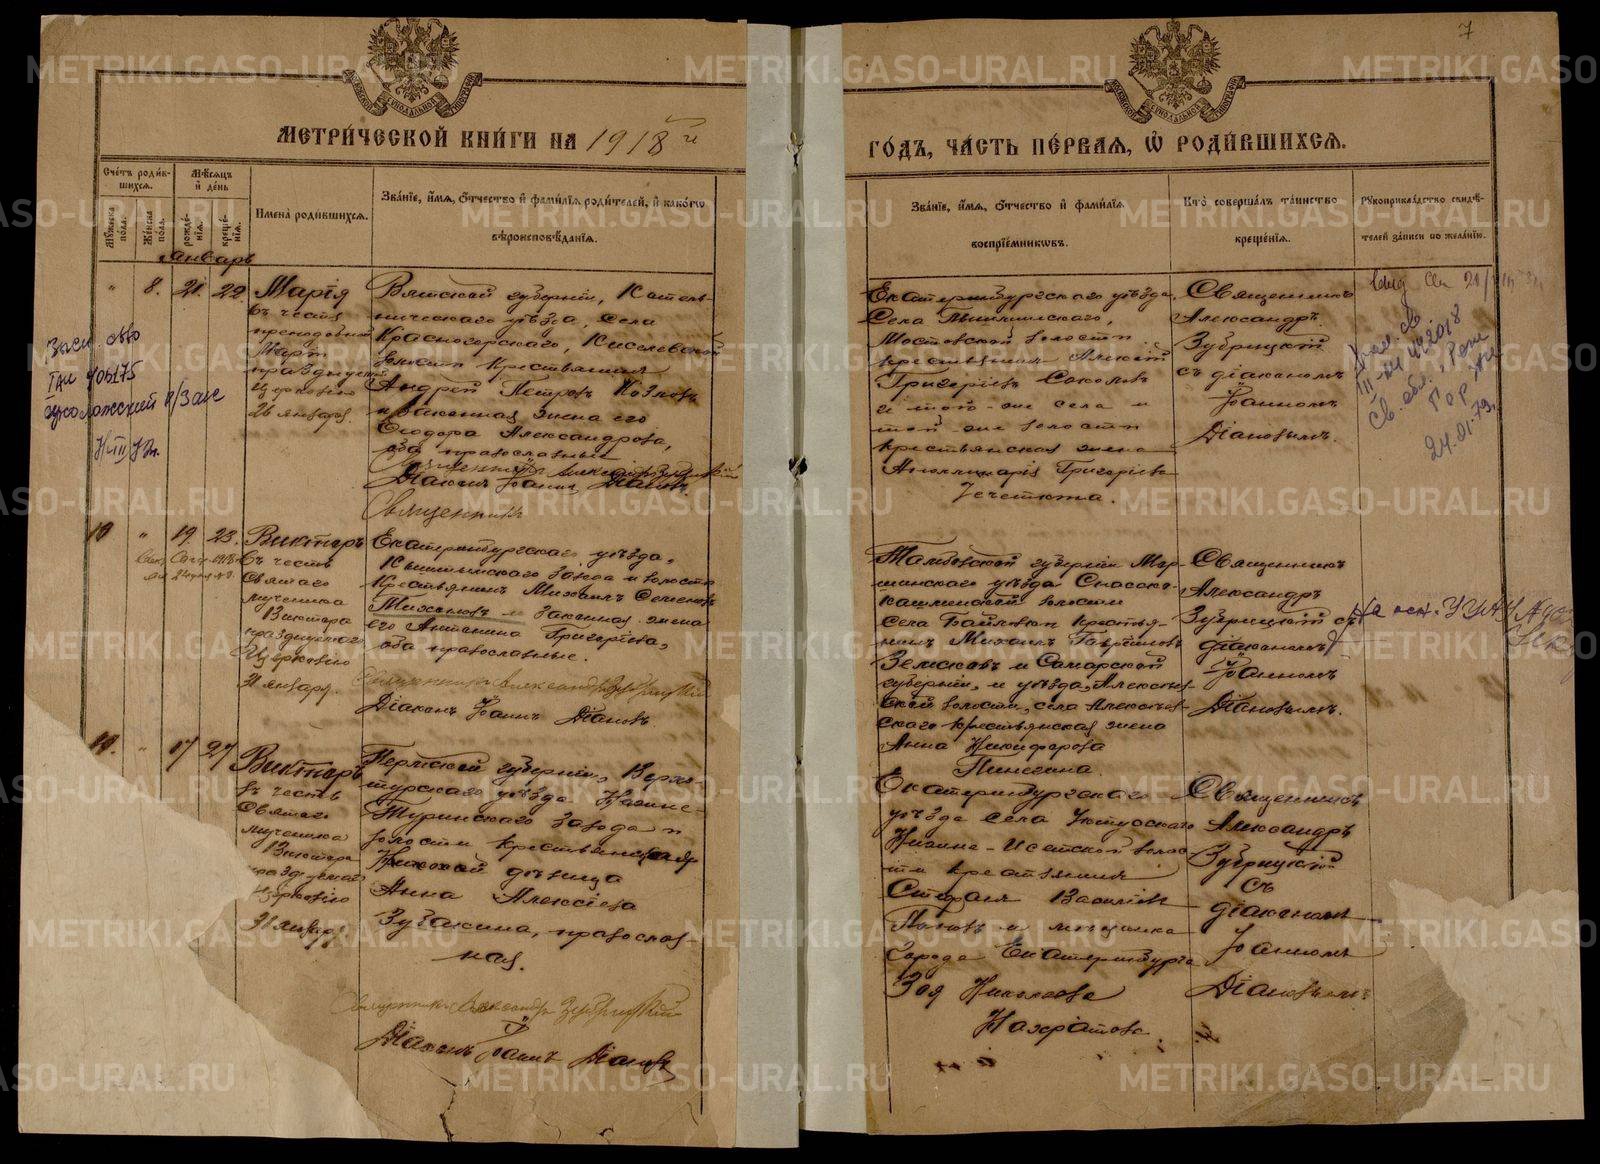 7
МЕТРИ́ЧЕСКОЙ КНИ́ГИ НА 1918 й
ГО́ДЪ, ЧА́СТЬ ПЕ́РВАЯ, Ѽ РОДИ́ВШИХСЯ.
Сче́тъ роди́в-
шихся.
Мѣ́сяцъ
и҆ де́нь
Му́жеска
по́ла.
Же́нска
по́ла.
рожде́-
нія.
креще́-
нія.
И҆мена̀ роди́вшихся.
Зва́нїе, и҆́мя, ѻ҆́тчество и҆ фами́лїя роди́телей, и҆ како́гѡ
вѣроисповѣ́данїя.
Зва́нїе, и҆́мя, ѻ҆́тчество и҆ фами́лїя
воспрїе́мникѡвъ.
Кто̀ соверша́лъ та́инство
креще́нїя.
Рукоприкла́дство свидѣ́-
телей за́писи по жела́нїю.
Январь
" 8. 21. 22.
Марія
въ честь
преподобной
Март
празднуем
Церковію
26 января.
Вятской губерніи, Котель-
ническаго уѣзда, села
Красногорскаго, Киселевской
волости крестьянин
Андрей Петровъ Козловъ
и законная жена его
Ѳеодора Александрова,
оба православные
Священникъ Александръ Зубрицкій
Діаконъ Іоаннъ Діановъ.
Священникъ
Екатеринбургскаго уѣзда,
Села
Мостовской волости
крестьянин Алексѣй
Григорьевъ Соколовъ
и того-же села и
той же волости
крестьянская жена
Аполлинарія Григорьева
Священникъ
Александръ
Зубрицкій
съ діакономъ
Іоанномъ
Діановымъ.
24.01.79г.
10 " 19. 23.
Викторъ
въ честь
святаго
мученика
Виктора
празднуемаго
Церковію
31 января.
Екатеринбургскаго уѣзда,
Кыштымскаго завода и волости
крестьянинъ Михаилъ Семеновъ
и законная жена
его Антонина Григорьева,
оба православные.
Священникъ Александръ Зубрицкій
Діаконъ Іоаннъ Діановъ.
Тамбовской губерніи Мор-
шанскаго уѣзда Спасско-
кашминской волости
Села крестья-
нинъ Михаилъ Гаврииловъ
Земсковъ и Самарской
губерніи, и уѣзда, Алексѣев-
ской волости, села Алексѣев-
скаго крестьянская жена
Анна Никифорова
Пинегина.
Священникъ
Александръ
Зубрицкій съ
діакономъ
Іоанномъ
Діановымъ.
На осн.
11. " 17 27
Викторъ
въ честь
Святаго
мученика
Виктора
празднуемаго
церковію
31 января
Пермской губерніи, Верхо-
турскаго уѣзда Нижне-
Туринскаго завода и
волости крестьянская
дѣвица
Анна Алексіева
Зубакина, православ-
ная.
Священникъ Александръ Зубрицкій
Діаконъ Іоаннъ Діановъ
Екатеринбургскаго
уѣзда села Уктусскаго
Нижне-Исетской волос-
ти крестьянин
Стефанъ Василіевъ
Поповъ и мѣщанка
города Екатеринбурга
Зоя Николаева
Священникъ
Александръ
Зубрицкій
съ
діакономъ
Іоанномъ
Діановымъ
METRIKI.GASO-URAL.RU